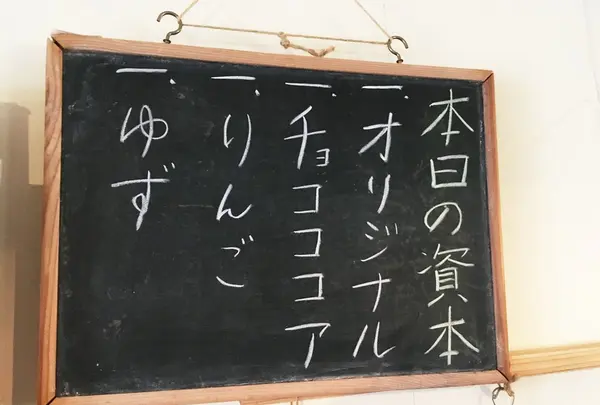 本日の資本
一.オリジナル
一.チョコココア
一.りんご
一.ゆず